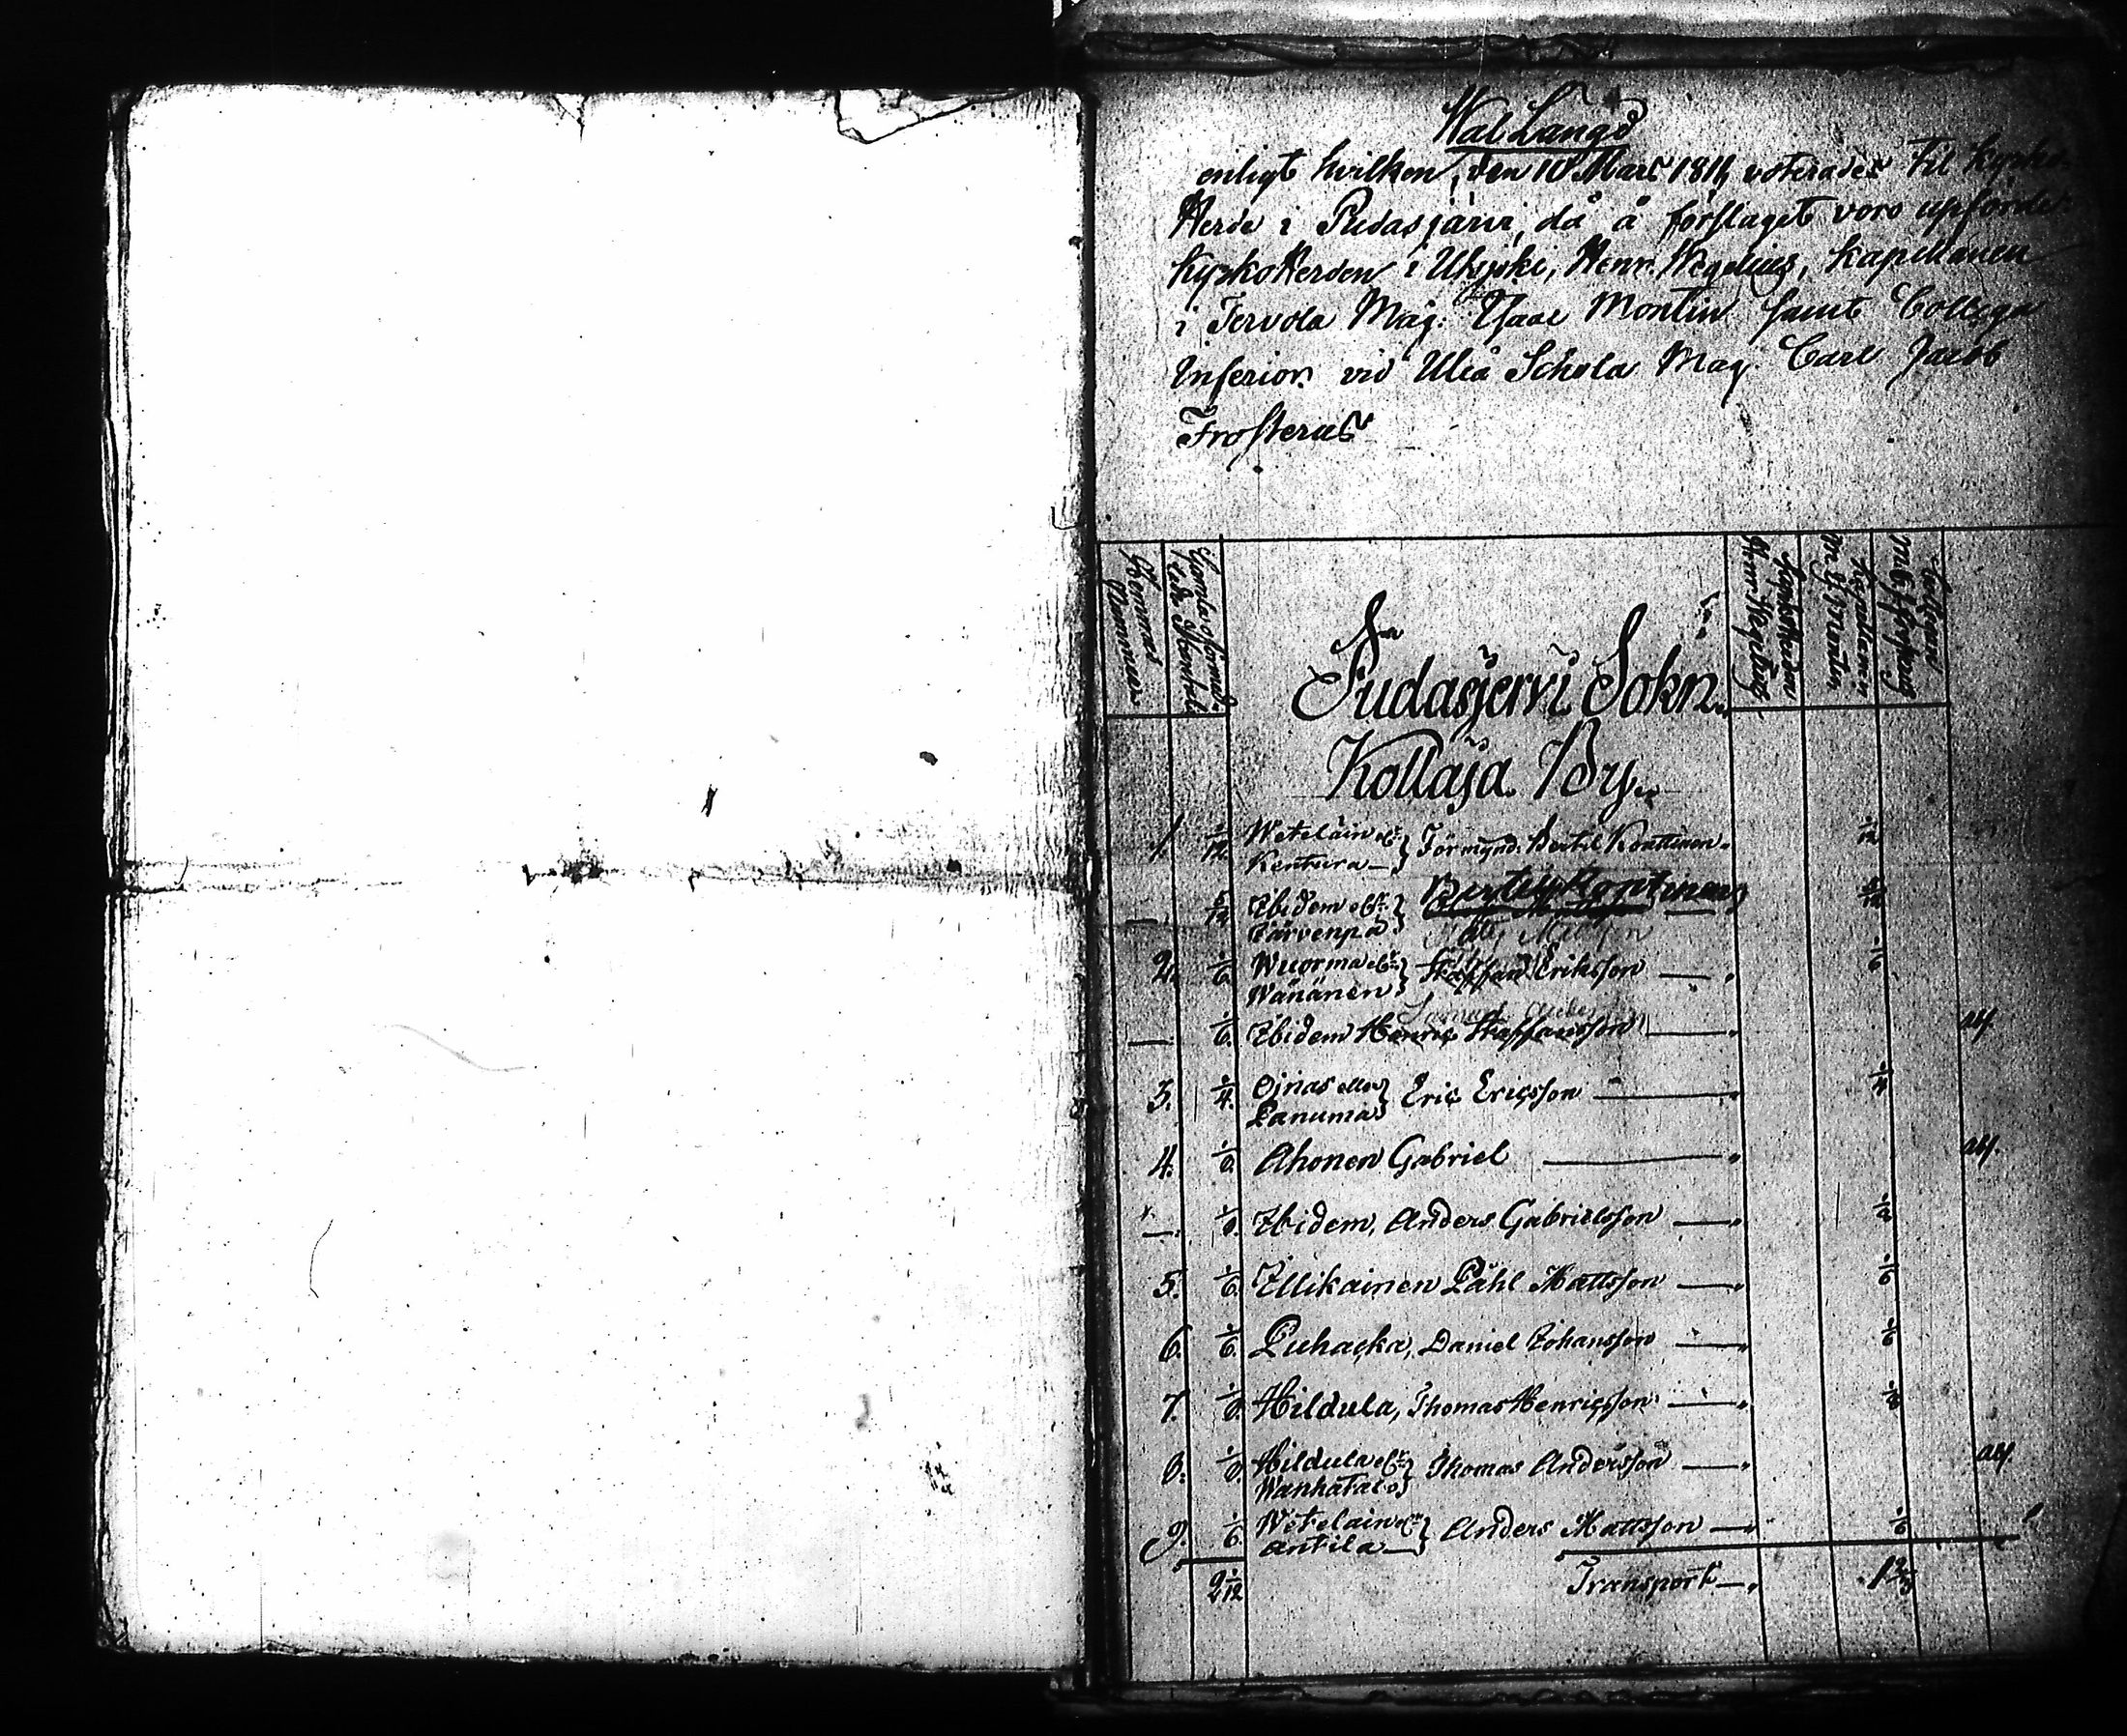 Wal Längd
enligt hvilken, den 10 Mars voterades Til Kyrko-
Herde i Pudasjärvi, då å förslaget voro upförde
KyrkoHerden i Utsjoki, Henr. Wegelius, Kapellanen
i Tervola Mag: Isaac Montin samt Collega
Inferior vid Uleå Schola Mag. Carl Jacob
Frosterus
Hemmans Nummer
Gamla Hemtal
KyrkoHerden Henr. Wegelius
Kapellanen M. I. Montin
Collegan M. C. J. Frosterus
Pudasjervi Sokn.
Kollaja By.
1. 1/12 Wetelain elr Kentura Förmynd. Bertil Konttinen 1/12
— 5/12 Ibidem elr Järvenpä Bertil Konttinen 5/12
2. 1/6 Wuorma elr Wänänen Staffan Eriksson 1/6
— 1/6 Ibidem Henric Staffansson abs.
3. 1/4 Ojnas eller Panuma Eric Ericsson 1/4
4. 1/8 Ahonen Gabriel abs.
— 1/8 Ibidem, Anders Gabrielsson 1/8
5. 1/6 Illikainen Påhl Mattsson 1/6
6. 1/6 Puhacka, Daniel Johansson 1/6
7. 1/8 Hildula, Thomas Henricsson 1/8
8. 1/8 Hildula elr Wanhatalo Thomas Andersson abs.
9. 1/6 Wetelain elr Antila Anders Mattsson 1/6
2 1/12 Transport